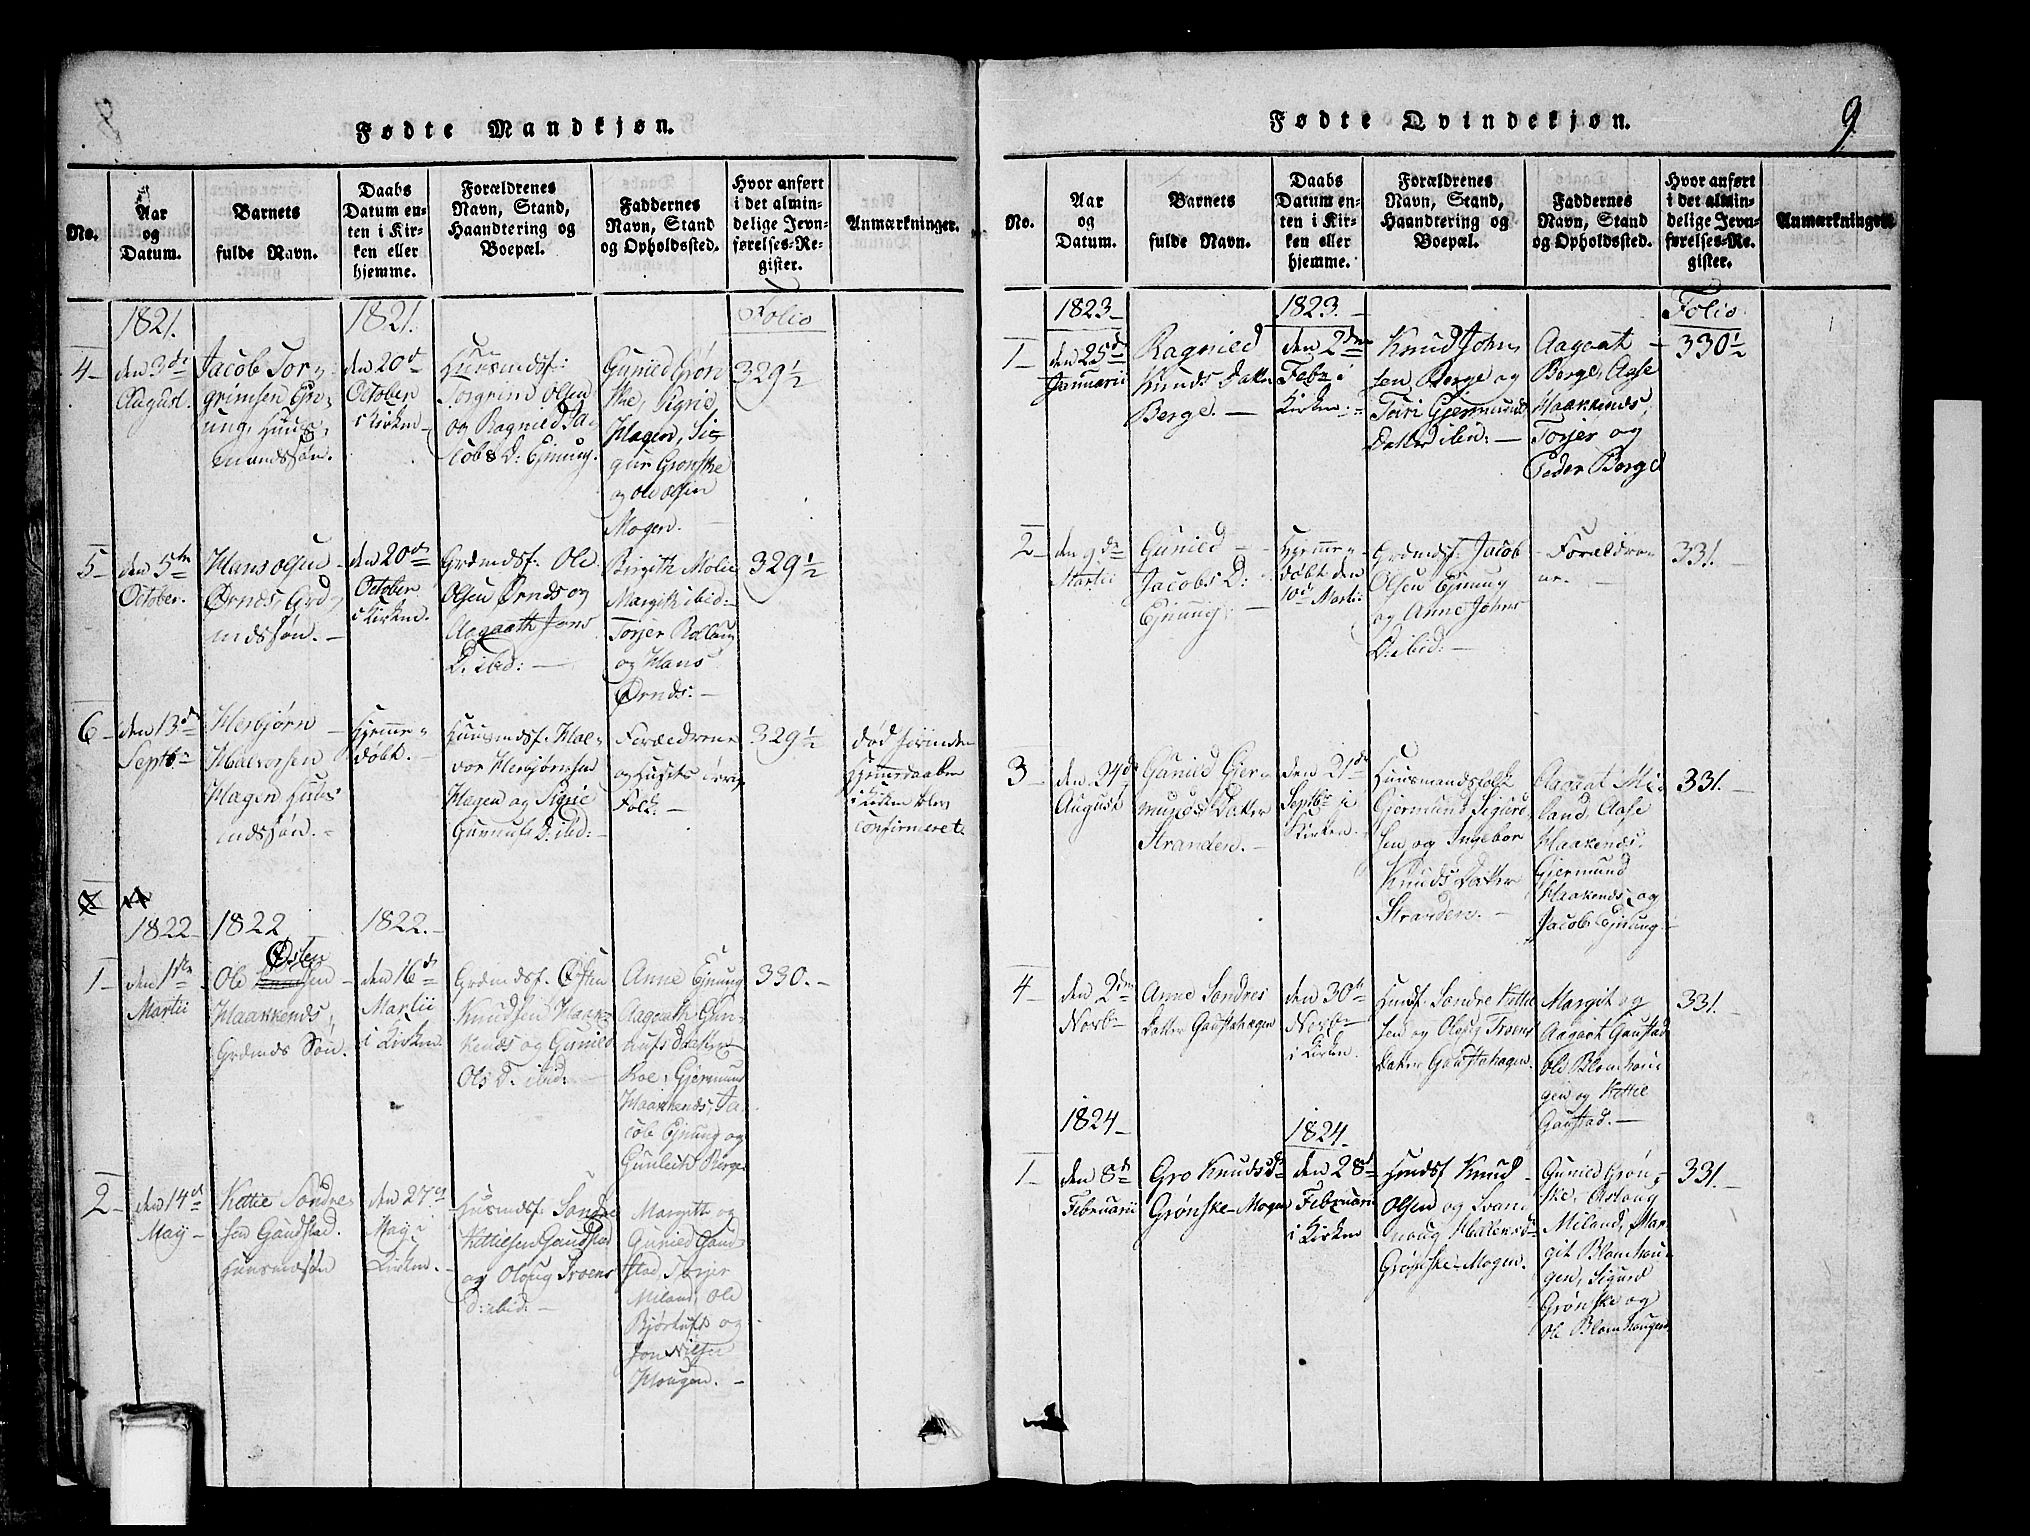 8
Fødte Mandkjøn.
No.
Aar
og
Datum.
Barnets
fulde Navn.
Daabs
Datum en-
ten i Kir-
ken eller
hjemme.
Forældrenes
Navn, Stand,
Haandtering og
Boepæl.
Faddernes
Navn, Stand
og Opholdssted.
Hvor anført
i det almin-
delige Jevn-
førelses-Re-
gister.
Anmærkninger.
1821.
1821.
Folio
4
den 3de
August
Jacob Tor-
grimsen
Ejnung, Huus-
mandssøn.
den 20de
October
i Kirken
Huusmdsf:
Torgrim Olsen
og Ragnied Ja-
cobs D: Ejnung.
Gunied Grøn
ske, Sigrie
Hagen, Si-
gur Grønske
og Ole Olsen
Mogen.
329½
5
den 5te
October.
Hans Olsen
Ørnes, Grd-
mdssøn.
den 20de
October
i Kirken.
Grdmdsf. Ole
Olsen Ørnes og
Aagaath Jons
D. ibid:
Birgith Molie
Margith ibid:
Torjer
og Hans
Ørnes:
329½
6
den 13de
Septbr
Herbjørn
Halvorsen
Hagen Huus
mdssøn.
Hjemme-
døbt.
Huusmdsf. Hal-
vor Herbjørnsen
Hagen og Sigrie
Gunnulfs D: ibid:
Forældrene
og Husets øvrige
Folk.
329½
død forinden
Hjemmedaaben
i Kirken blev
confirmeret.
1822
1822
1822.
1
den 1ste
Martii
Østen
Ole Knudsen
Haakkends,
Grdmds Søn.
den 16de
Martii
i Kirken
Grdmdsf. Østen
Knudsen Haak-
kends og Gunied
Ols D. ibid:
Anne Ejnung
Aagaath Gun-
nulfs Datter
Roe, Gjermund
Haakkends, Ja-
cob Ejnung og
Gunleik Berge
330.
2
den 14de
May
Kittil Sondre
sen Gaustad.
Huusmdssøn
den 27de
May i
Kirken.
Huusmdsf. Sondre
Kittilsen Gaustad
og Olaug Troens
D: ibid:
Margith og
Gunied Gaus
tad, Torjer
Miland, Ole
Bjørtuft og
Jon Nilsen
Hougen.
9
Fødte Qvindekjøn.
No.
Aar
og
Datum.
Barnets
fulde Navn.
Daabs
Datum en-
ten i Kir-
ken eller
hjemme.
Forældrenes
Navn, Stand,
Haandtering og
Boepæl.
Faddernes
Navn, Stand
og Opholdssted.
Hvor anført
i det almin-
delige Jevn-
førelses-Re-
gister.
Anmærkninger
1823
1823.
Folio
1
den 25de
Januarii
Ragnied
Knuds Datter
Berge.
den 2den
Febr i
Kirken
Knud John-
sen Berge og
Turi Gjermunds
Datter ibid:
Aagaat
Berge, Aase
Haakkends,
Torjer og
Peder Berge
330½
2
den 9de
Martii
Gunied
Jacobs D:
Ejnung.
Hjemme-
døbt den
10de Martii
Grdmdsf: Jacob
Olsen Ejnung
og Anne Johns
D: ibid:
Forældre-
ne.
331.
3
den 24de
August
Gunied Gjer-
munds Datter
Stranden.
den 21de
Septbr i
Kirken.
Huusmandsfolk
Gjermund Sigurd
sen og Ingebor
Knuds Datter
Stranden.
Aagaat Mi-
land, Aase
Haakends,
Gjermund
Haakends og
Jacob Ejnung
331.
4
den 2den
Novbr
Anne Sondres
Datter Gaustahagen
den 30te
Novbr
i Kirken.
Hmdsf. Sondre Kittil
sen og Olaug Troens
Datter Gaustahagen.
Margit og
Aagaat Gaustad
Ole Blomhou
gen og Kittil
Gaustad.
331.
1824
1824.
1
den 8de
Februarii
Gro Knudsd
Grønske-Mogen
den 28de
Februarii
i Kirken
Hmdsf. Knud
Olsen og Svan
noug Halvorsd
Grønske-Mogen.
Gunied Grøn-
ske, Aslaug
Miland, Mar-
git Blomhou-
gen, Sigurd
Grønske og
Ole Blomhougen
331.